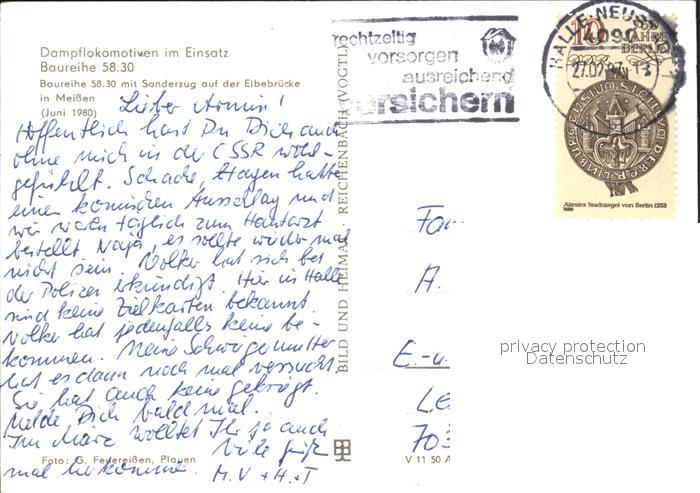 Dampflokomotiven im Einsatz
Baureihe 58.30
Baureihe 58.30 mit Sonderzug auf der Elbebrücke
in Meißen
(Juni 1980)
Lieber Armin!
Hoffentlich hast Du Dich auch
ohne mich in der CSSR wohl-
gefühlt. Schade, Hagen hatte
einen komischen Ausschlag und
wir waren täglich zum Hautarzt
bestellt. Naja, es sollte wieder mal
nicht sein. Volker hat sich bei
der Polizei erkundigt. Hier in Halle
sind keine Zielkarten bekannt.
Volker hat jedenfalls keine be-
kommen. Meine Schwiegermutter
hat es dann noch mal versucht.
Sie hat auch keine gekriegt.
Melde Dich bald mal.
Im März wolltet Ihr ja auch
mal herkommen.
Viele Grüße
M. V + H. + T
Foto: G. Feuereißen, Plauen
BILD UND HEIMAT REICHENBACH (VOGTL)
V 11 50 A
rechtzeitig
vorsorgen
ausreichend
versichern
HALLE-NEUS
4090
27.02.87
10
JAHRE
BERLIN
Ältestes Stadtsiegel von Berlin 1253
1986
Fa
A.
E.-
Le
703
privacy protection
Datenschutz